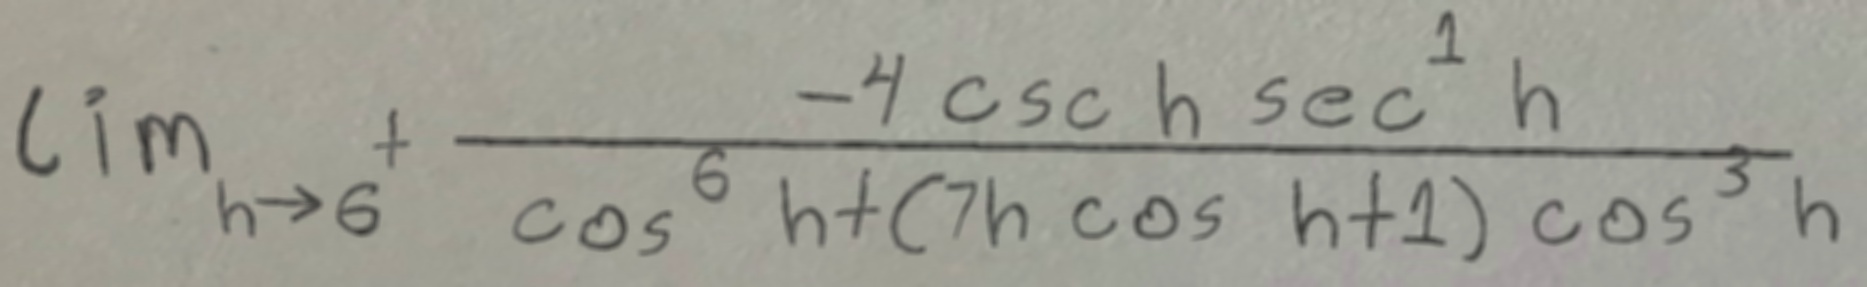 \lim_{h \to 6^+} \frac{-4 \csc h \sec^1 h}{\cos^6 h + (7h \cos h + 1) \cos^3 h}